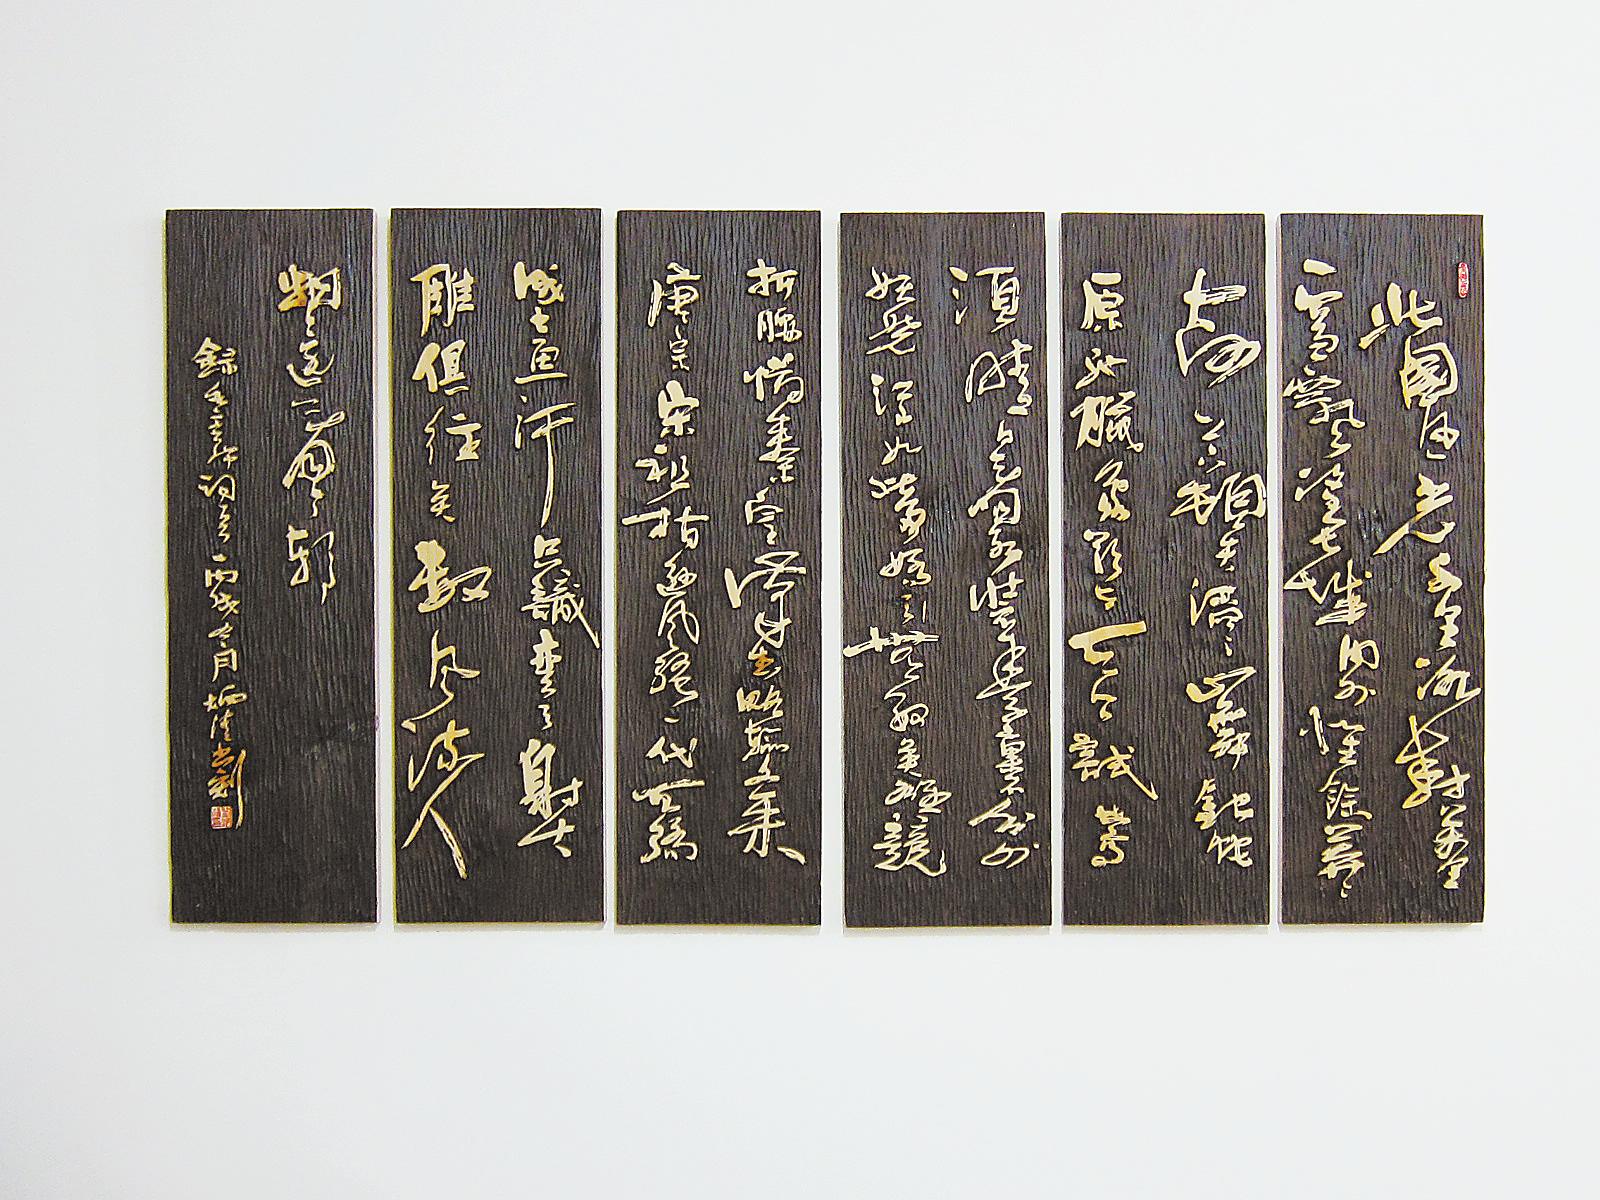 北國風光千里冰封萬里
雪飄望長城內外惟餘莽莽
大河上下頓失滔滔山舞銀蛇
原馳臘象欲與天公試比高
須晴日看紅裝素裹分外
妖嬈江山如此多嬌引無數英雄競
折腰惜秦皇漢武略輸文采
唐宗宋祖稍遜風騷一代天驕
成吉思汗只識彎弓射大
雕俱往矣數風流人
物還看今朝
錄毛主席詞丙戌月書刻